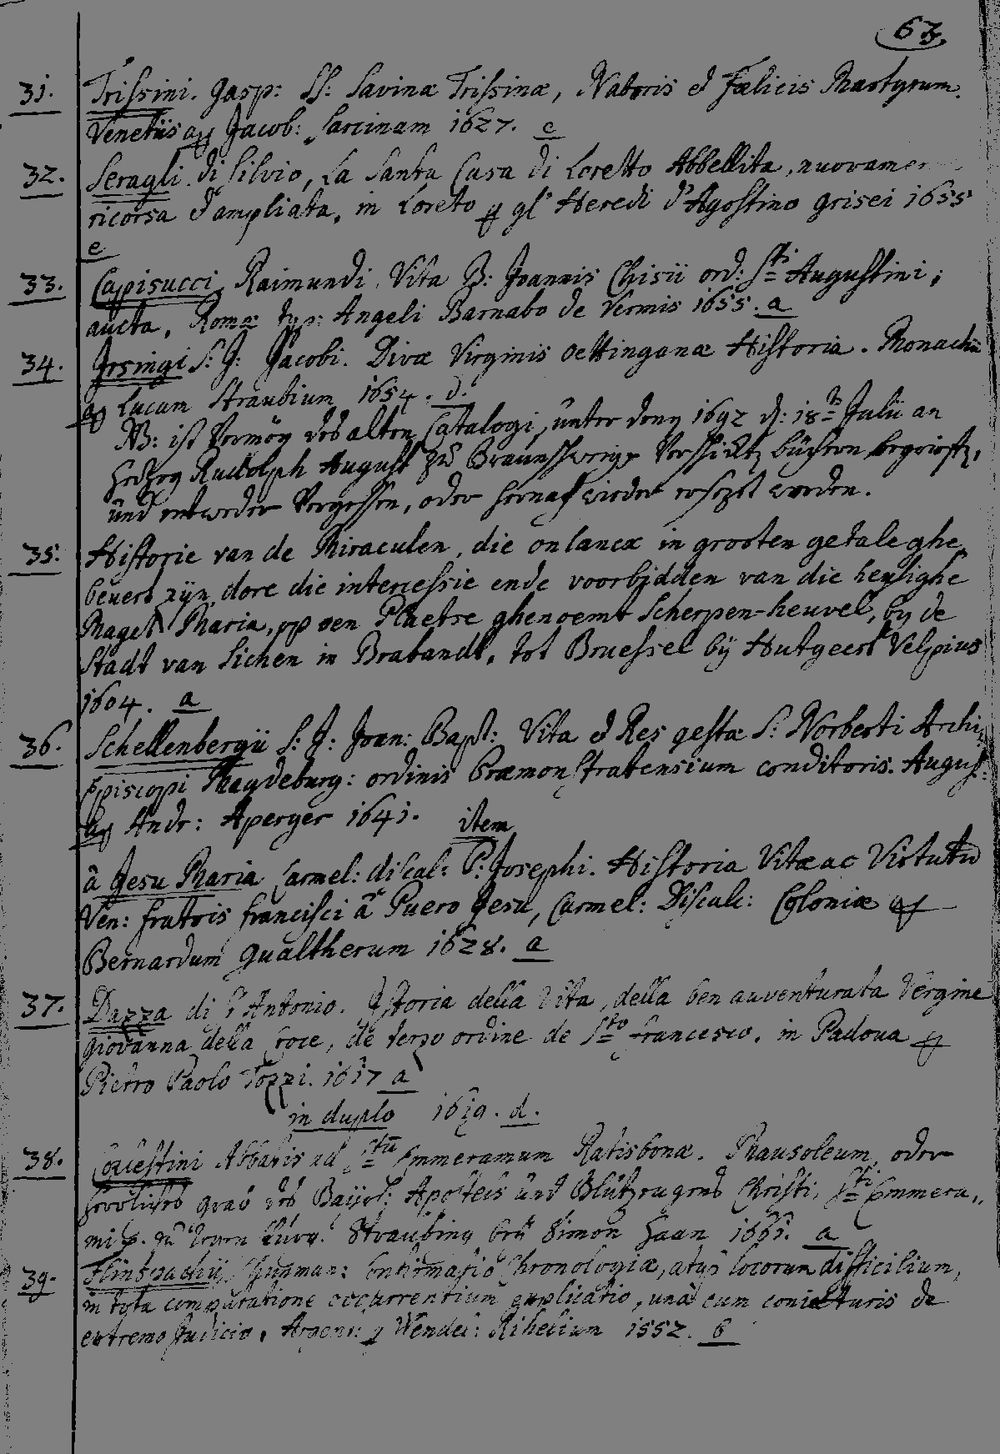 63.
31. Trissini. Gasp: SS: Savinæ Trissinæ, Naboris et Fælicis Martyrum.
Venetiis apud Jacob: Sarcinam 1627. c
32. Seragli. di Silvio, La Santa Casa di Loretto Abbellita, nuovamen
ricorsa et ampliata, in Loreto p gl' Heredi d'Agostino Grisei 1655
e
33. Capisucci Raimundi Vita B: Joannis Chisii ord: Sti Augustini;
aucta, Romæ typ: Angeli Barnabo de Vermis 1655. a
34. Irsingi S: J: Jacobi. Divæ Virginis Oettinganæ Historia. Monachii
ap Lucam Straubium 1654. d.
NB: ist Vermög des alten Catalogi, unter dem 1692 d: 18t Julii an
Hertzog Rudolph August zu Braunschweig Verschickte büchern begriffen,
und entweder Vergessen, oder hernach wieder ersezet worden.
35. Historie van de Miraculen, die onlancx in grooten getale ghe
beuert zijn, dore die intercessie ende voorbidden van die heylighe
Maget Maria, op een Plaetse ghenoemt Scherpen-heuvel, by de
Stadt van Sichen in Brabandt, tot Bruessel bij Hutgeert Velpius
1604. a
36. Schellenbergii S: J: Joan: Bapt: Vita et Res gestæ S: Norberti Archi,
Episcopi Magdeburg: ordinis Præmonstratensium conditoris. August:
ap Andr: Aperger 1641. item
â Jesu Maria Carmel: discal: P: Josephi. Historia Vitæ ac Virtutu
Ven: fratris francisci â Puero Jesu, Carmel: Discalc: Coloniæ ap
Bernardum Gualtherum 1628. a
37. Dazza di F Antonio. Istoria della Vita, della ben auventurata Vergine
Giovanna della Croce, de terzo ordine de Sto francesco, in Padoua p
Pietro Paolo Tozzi. 1617 a
in duplo 1619. d.
38. Cœlestini Abbatis ad Stu Emmeramum Ratisbonæ. Mausoleum oder
herrliches grab des Bayrl: Apostels und Blutzeugens Christi, Sti Emmera,,
mi Straubing beÿ Simon Haan 1661. a
39. Flinspachii, Cunman: Confirmatio Chronologiæ, atq locorum difficilium,
in tota computatione occurrentium explicatio, una cum coniecturis de
extremo Judicio, Argent: p Wendel: Rihelium 1552. b